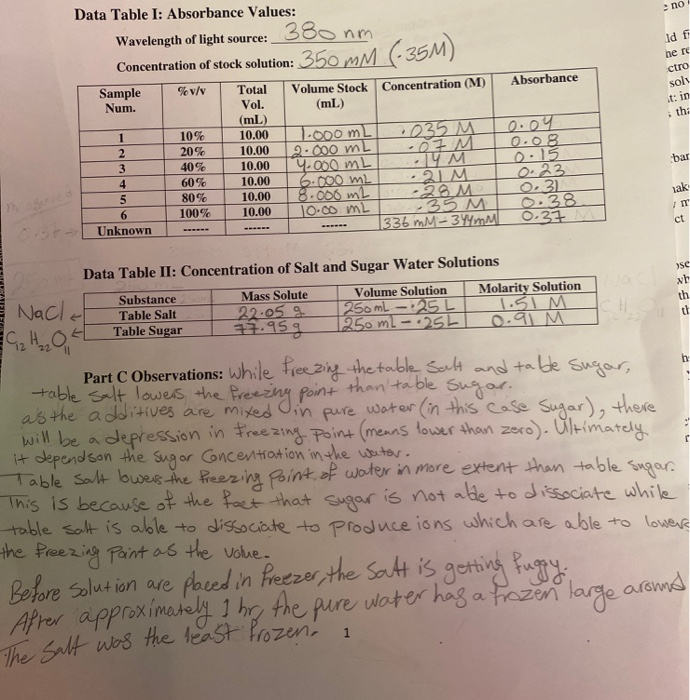 Data Table I: Absorbance Values:
Wavelength of light source: 380 nm
Concentration of stock solution: 350 mM (.35M)
Sample Num. % v/v Total Vol. (mL) Volume Stock (mL) Concentration (M) Absorbance
1 10% 10.00 1.000 mL .035 M 0.04
2 20% 10.00 2.000 mL .07 M 0.08
3 40% 10.00 4.000 mL .14 M 0.15
4 60% 10.00 6.000 mL .21 M 0.23
5 80% 10.00 8.000 mL .28 M 0.31
6 100% 10.00 10.00 mL .35 M 0.38
Unknown ------ ------ ------ 336 mM-344mM 0.37
Data Table II: Concentration of Salt and Sugar Water Solutions
Substance Mass Solute Volume Solution Molarity Solution
NaCl Table Salt 22.05 g 250mL - .25 L 1.51 M
C12H22O11 Table Sugar 77.95 g 250 mL - .25L 0.91 M
Part C Observations: While freezing the table salt and table sugar,
table salt lowers the freezing point than table sugar.
as the additives are mixed in pure water (in this case sugar), there
will be a depression in freezing point (means lower than zero). Ultimately
it depends on the sugar concentration in the water.
Table salt lowers the freezing point of water in more extent than table sugar.
This is because of the fact that sugar is not able to dissociate while
table salt is able to dissociate to produce ions which are able to lowers
the freezing point as the value.
Before solution are placed in freezer, the salt is getting fuggy.
After approximately 1 hr, the pure water has a frozen large around
The salt was the least frozen.
1